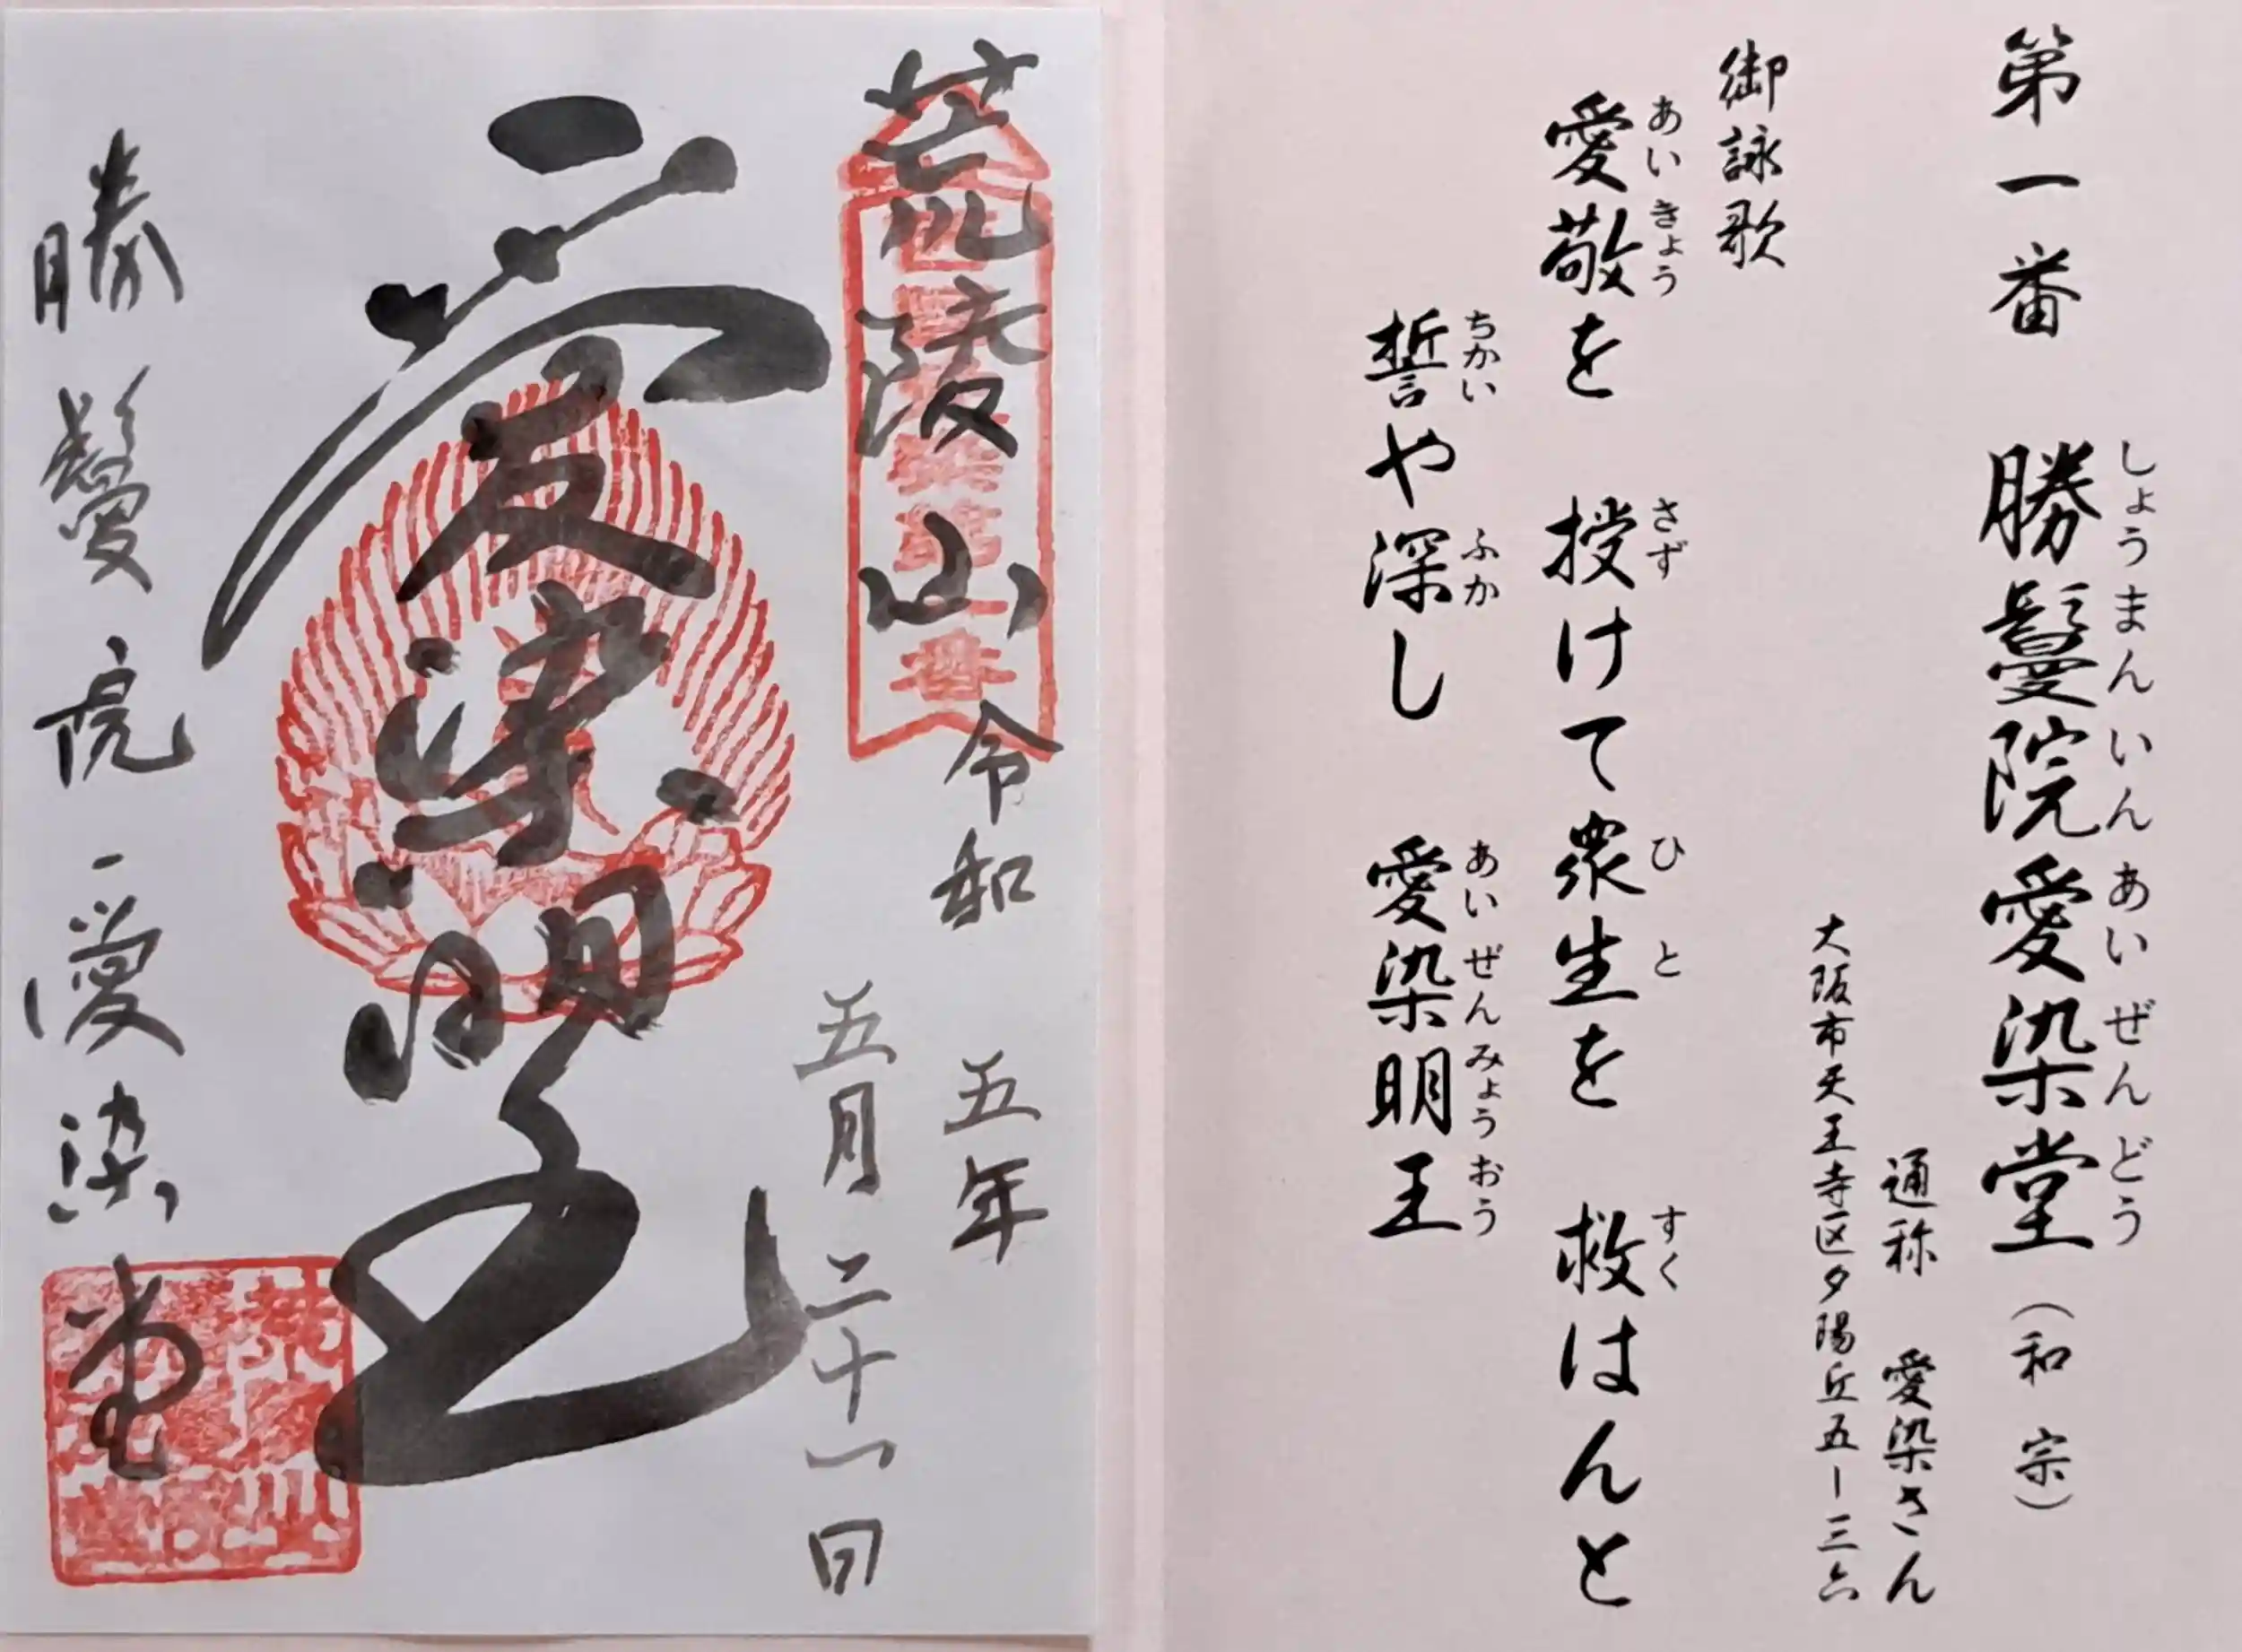 第一番 勝鬘院愛染堂（和宗）
しょうまんいんあいぜんどう
通称 愛染さん
大阪市天王寺区夕陽丘五ー三六
御詠歌
愛敬を 授けて衆生を 救はんと
あいきょう さず ひと すく
誓や深し 愛染明王
ちかい ふか あいぜんみょうおう
荒陵山
令和 五年
五月二十一日
愛染明王
勝鬘院 愛染堂